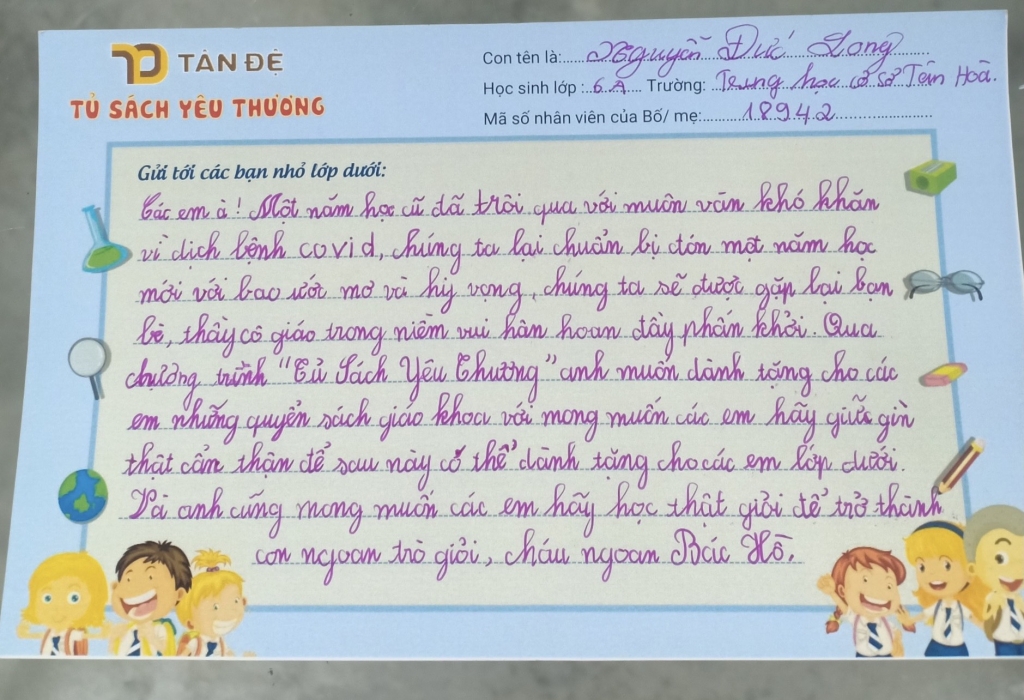 TÂN ĐỆ
TỦ SÁCH YÊU THƯƠNG
Con tên là: Nguyễn Đức Long
Học sinh lớp: 6A Trường: Trung học cơ sở Tân Hoà.
Mã số nhân viên của Bố/ mẹ: 18942
Gửi tới các bạn nhỏ lớp dưới:
Các em à! Một năm học cũ đã trôi qua với muôn vàn khó khăn
vì dịch bệnh covid, chúng ta lại chuẩn bị đón một năm học
mới với bao ước mơ và hy vọng, chúng ta sẽ được gặp lại bạn
bè, thầy cô giáo trong niềm vui hân hoan đầy phấn khởi. Qua
chương trình "Tủ Sách Yêu Thương" anh muốn dành tặng cho các
em những quyển sách giáo khoa với mong muốn các em hãy giữ gìn
thật cẩn thận để sau này có thể dành tặng cho các em lớp dưới.
Và anh cũng mong muốn các em hãy học thật giỏi để trở thành
con ngoan trò giỏi, cháu ngoan Bác Hồ.